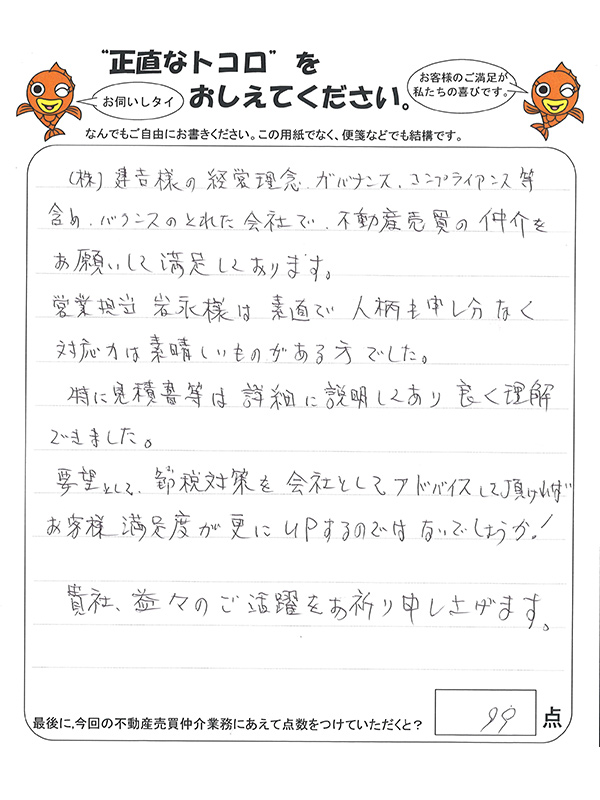 "正直なトコロ"を
おしえてください。
お伺いしタイ
お客様のご満足が
私たちの喜びです。
なんでもご自由にお書きください。この用紙でなく、便箋などでも結構です。
(株)建吉様の経営理念、ガバナンス、コンプライアンス等
含め、バランスのとれた会社で、不動産売買の仲介を
お願いして満足しております。
営業担当 岩永様は素直で人柄も申し分なく
対応力は素晴しいものがある方でした。
特に見積書等は詳細に説明してあり良く理解
できました。
要望として、節税対策を会社としてアドバイスして頂ければ
お客様満足度が更にUPするのではないでしょうか!
貴社、益々のご活躍をお祈り申し上げます。
最後に,今回の不動産売買仲介業務にあえて点数をつけていただくと?
99 点